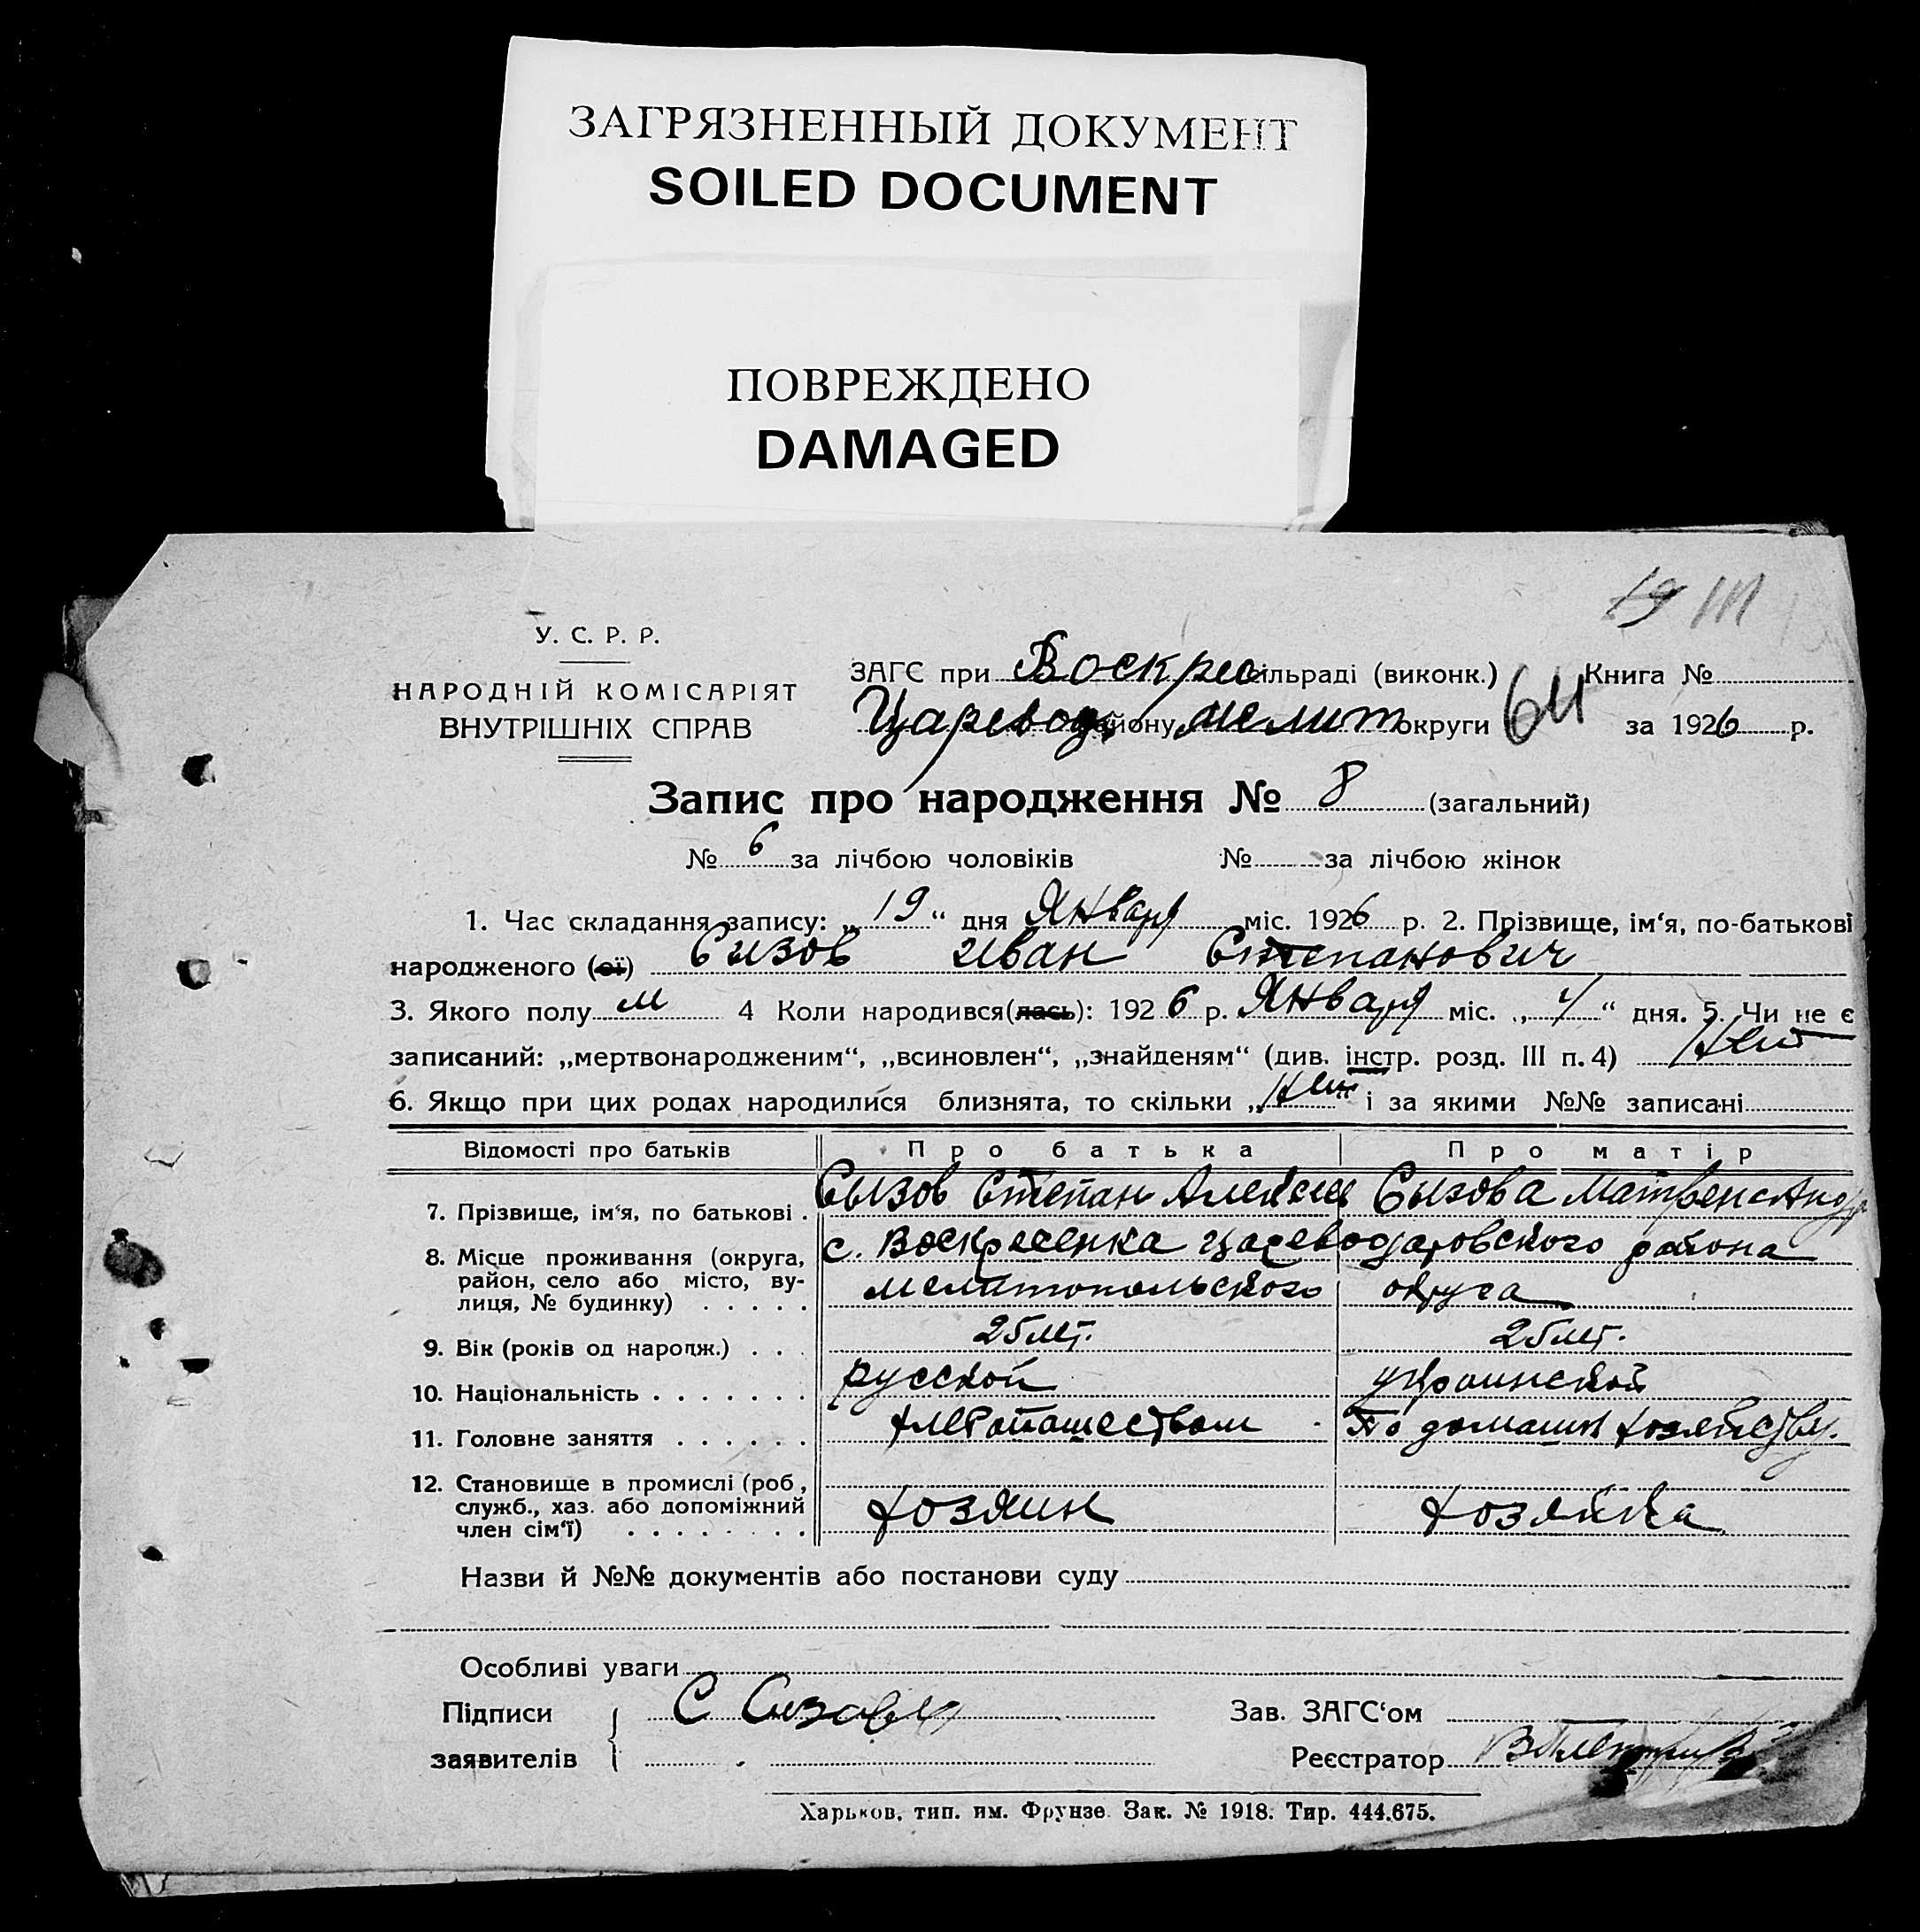 ЗАГРЯЗНЕННЫЙ ДОКУМЕНТ
SOILED DOCUMENT
ПОВРЕЖДЕНО
DAMAGED
19 111
У. С. Р. Р.
НАРОДНІЙ КОМІСАРІЯТ
ВНУТРІШНІХ СПРАВ
ЗАГС при Воскрес сільраді (виконк.) Книга №
Царевод району Мелит округи 64 за 1926 р.
Запис про народження № 8 (загальний)
№ 6 за лічбою чоловіків № за лічбою жінок
1. Час складання запису: „19“ дня Января міс. 1926 р. 2. Прізвище, ім‘я, по-батькові
народженого (ої) Сызов Иван Степанович
3. Якого полу м 4 Коли народився(лась): 1926 р. Января міс. „4“ дня. 5. Чи не є
записаний: „мертвонародженим“, „всиновлен“, „знайденям“ (див. інстр. розд. III п. 4) Нет
6. Якщо при цих родах народилися близнята, то скільки „Нет“ і за якими №№ записані
Відомості про батьків Про батька Про матір
7. Прізвище, ім‘я, по батькові . Сызов Степан Алексее Сызова Матрена Андр
8. Місце проживання (округа, район, село або місто, вулиця, № будинку) . . . . . с. Воскресенка Цареводаровского района
Мелитопольского округа
9. Вік (років од народж.) . . . 25 лет. 25 лет.
10. Національність . . . . . . . русской украинской
11. Головне заняття . . . . . . хлебопашеством По домашн хозяйству.
12. Становище в промислі (роб, служб., хаз. або допоміжний член сім‘ї) . . . . . . . . хозяин хозяйка
Назви й №№ документів або постанови суду
Особливі уваги
Підписи С Сызов Зав. ЗАГС‘ом
заявителів Реєстратор
Харьков, тип. им. Фрунзе. Зак. № 1918. Тир. 444.675.